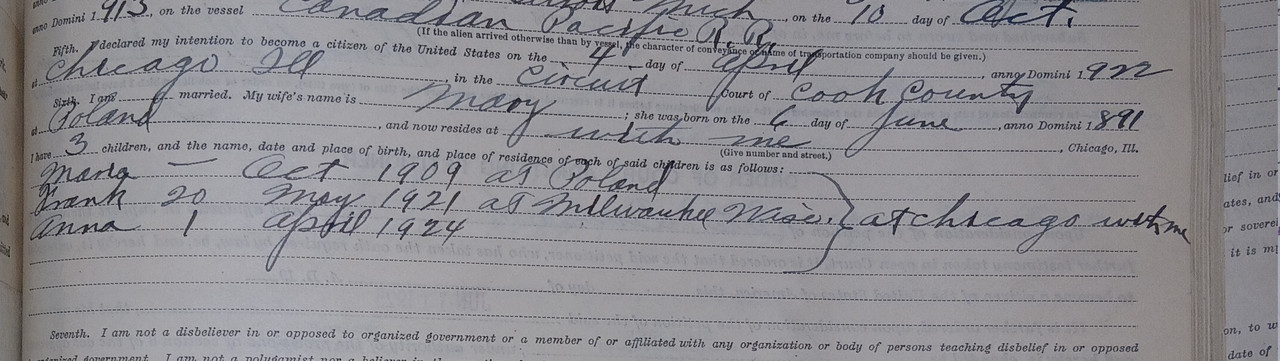 anno Domini 1913, on the vessel Canadian Pacific R. R. , on the 10 day of Oct.
(If the alien arrived otherwise than by vessel, the character of conveyance or name of transportation company should be given.)
Fifth. I declared my intention to become a citizen of the United States on the 4 day of April , anno Domini 1922
at Chicago Ill , in the Circuit Court of Cook County
Sixth. I am married. My wife's name is Mary ; she was born on the 6 day of June , anno Domini 1891
at Poland , and now resides at with me , Chicago, Ill.
(Give number and street.)
I have 3 children, and the name, date and place of birth, and place of residence of each of said children is as follows:
Maria — Oct 1909 at Poland
Frank 20 May 1921 at Milwaukee Wisc. } at Chicago with me
Anna 1 April 1924
Seventh. I am not a disbeliever in or opposed to organized government or a member of or affiliated with any organization or body of persons teaching disbelief in or opposed
organized government. I am not a polygamist nor a believer in the
lief in or
ates, and
or soverei
it is my
on, to w
date of